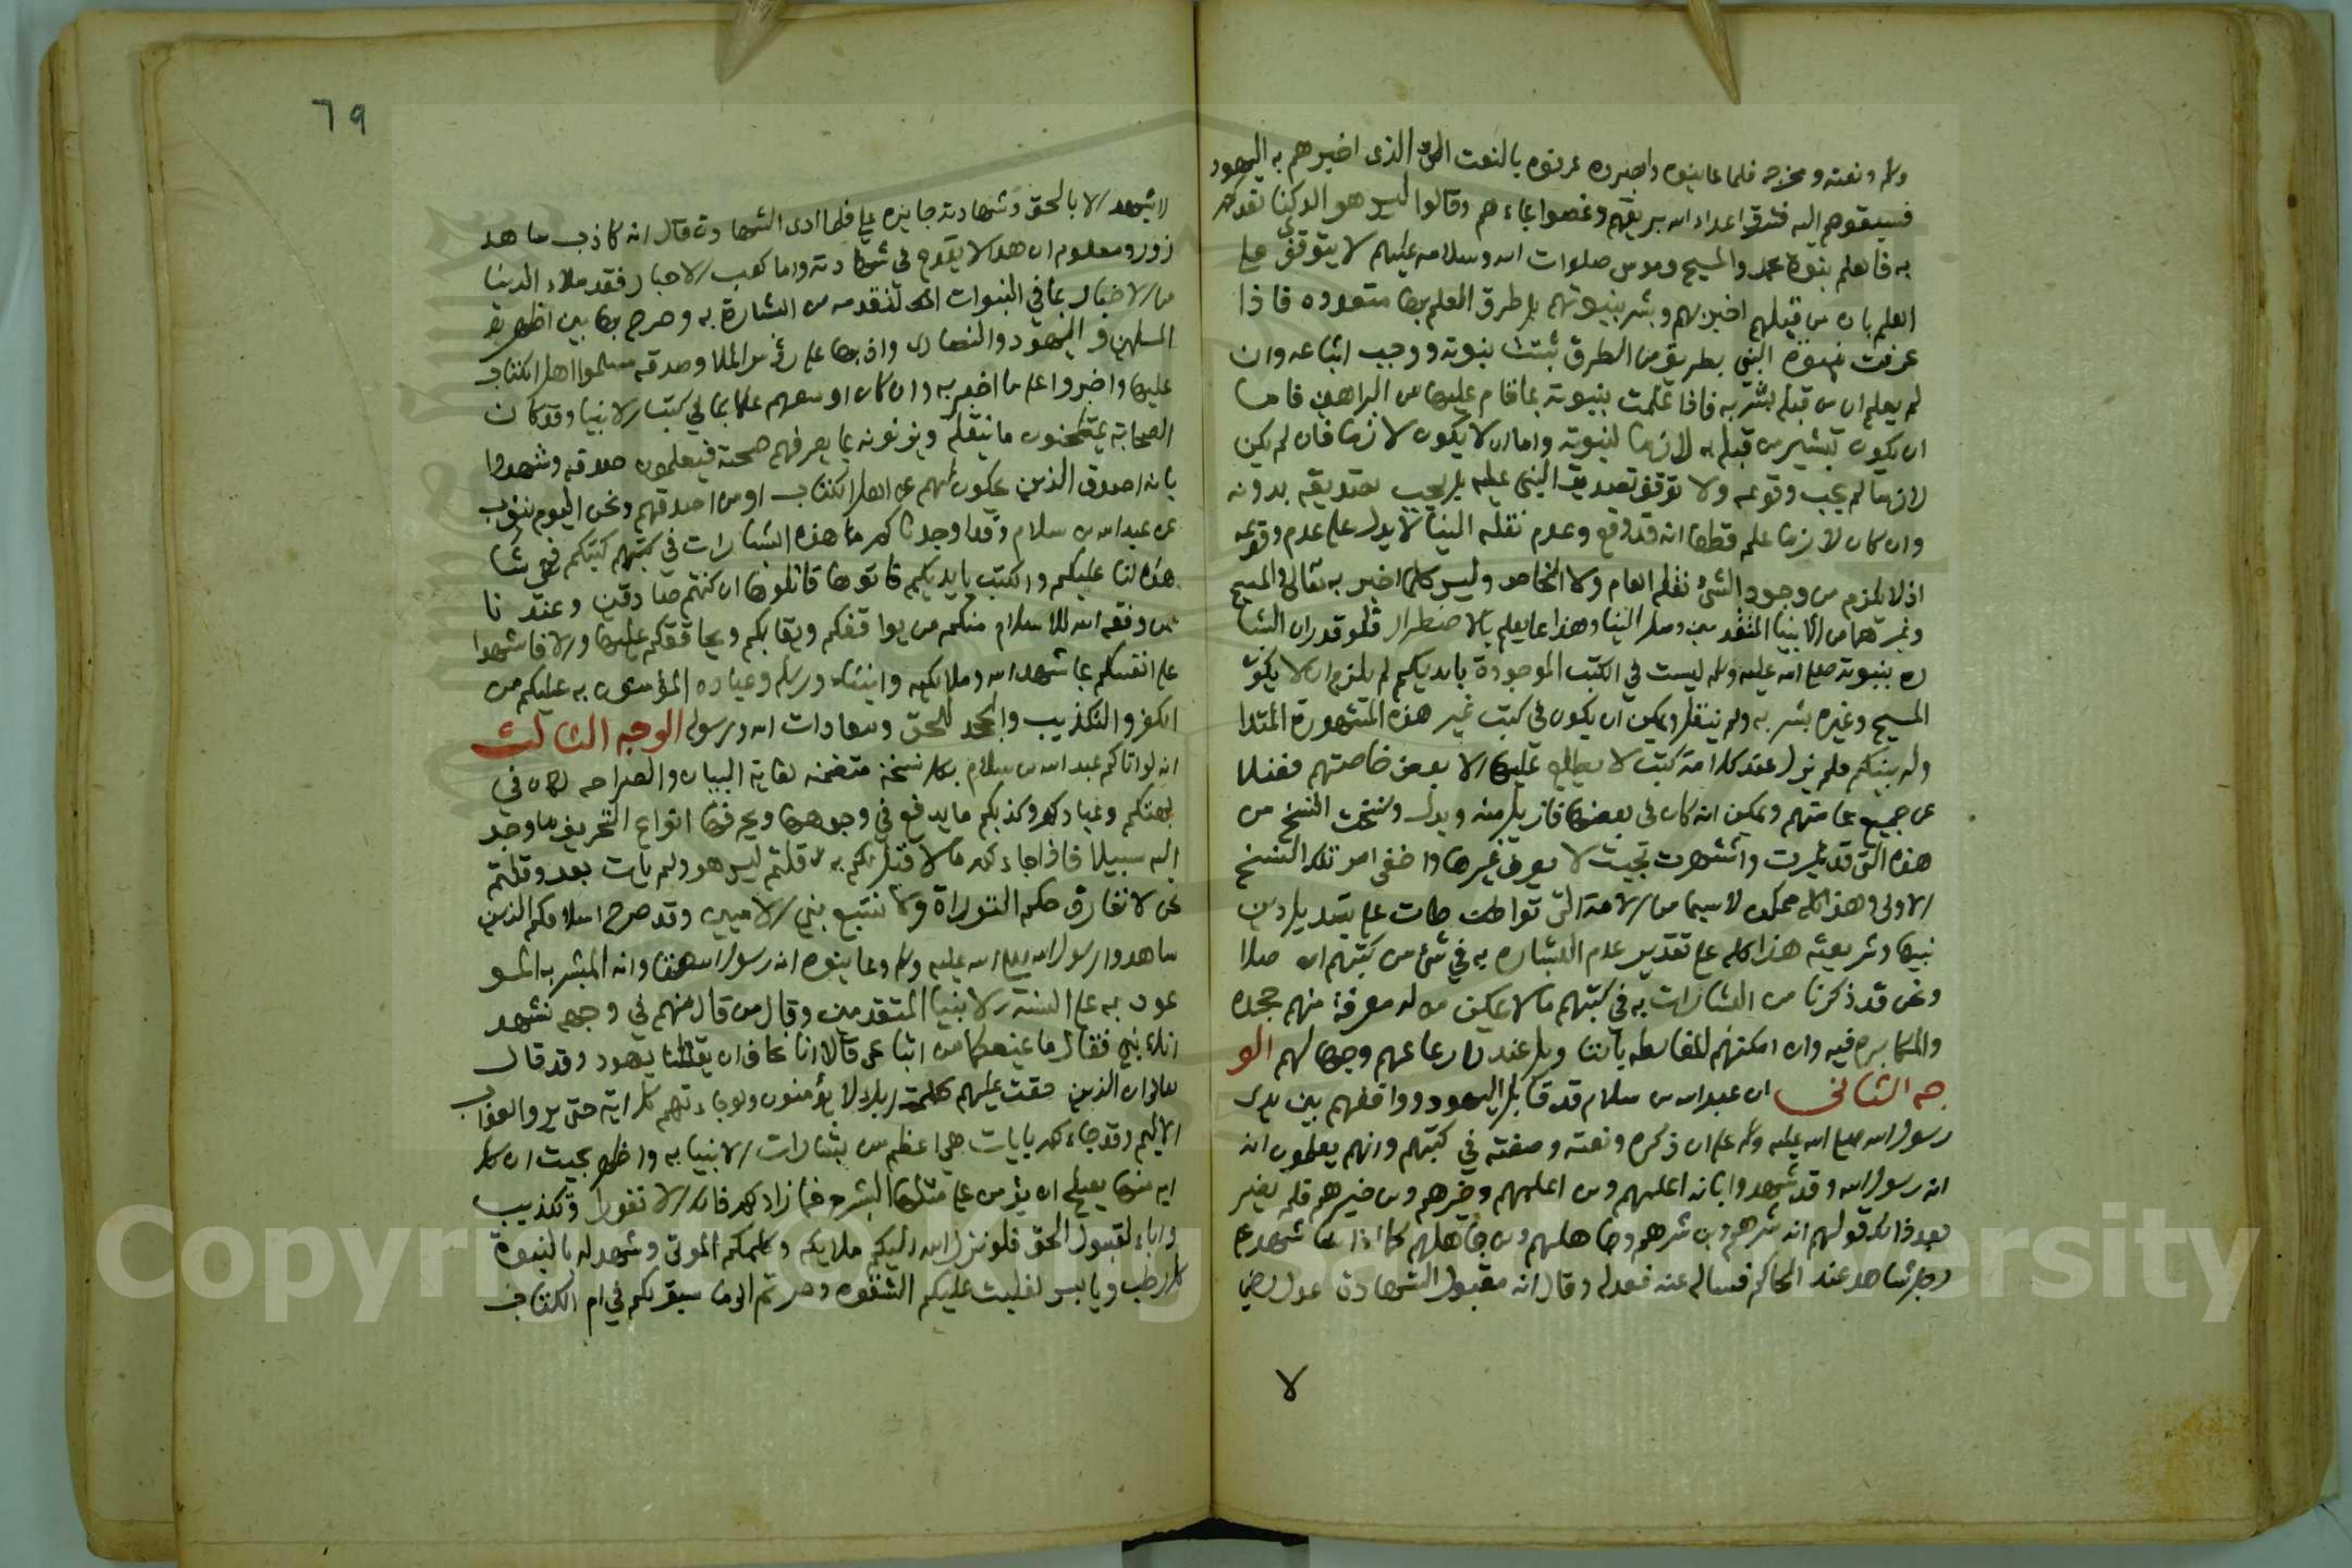 وسلم ونعته ومخرجه فلما عاينوه وابصروه عرفوه بالنعت الذى اخبرهم به اليهود
فسبقوهم اليه فشرق اعداء الله بريقهم وغصوا بماءهم وقالوا ليس هو الذى كنا نعدكم
به فالعلم بنبوة محمد والمسيح وموسى صلوات الله وسلامه عليهم لا يتوقف على
العلم بان من قبلهم اخبر بهم وبشر بنبوتهم بل طرق العلم بها متعدده فاذا
عرفت نبوة النبى بطريق من الطرق ثبتت نبوته ووجب اتباعه وان
لم يعلم ان من قبله بشر به فاذا علمت نبوته بما قام عليها من البراهين فاما
ان يكون تبشير من قبله به لازما لنبوته واما ان لا يكون لازما فان لم يكن
لازما لم يجب وقوعه ولا توقف تصديق النبى عليه بل يجب تصديقه بدونه
وان كان لازما علم قطعا انه قد وقع وعدم نقله الينا لا يدل على عدم وقوعه
اذ لا يلزم من وجود الشئ نقله العام ولا الخاص وليس كلما اخبر به موسى والمسيح
وغيرهما من الانبيا المتقدمين وصل الينا وهذا مما يعلم بالاضطرار فلو قدر ان البشا
ره بنبوته صلى الله عليه وسلم ليست في الكتب الموجودة بايديكم لم يلزم ان لا يكون
المسيح وغيره بشر به ولم ينقل ويمكن ان يكون في كتب غير هذه المشهورة المتدا
وله بينكم فلم يزل عند كل امة كتب لا يطلع عليها الا بعض خاصتهم فضلا
عن جميع عامتهم ويمكن انه كان في بعضها فازيل منه وبدل ونسخت النسخ من
هذه التى قد غيرت واشتهرت بحيث لا يعرف غيرها واخفى امر تلك النسخ
الاولى وهذا كله ممكن لا سيما من الامة التى تواطات على تبديل دين
نبيها وشريعته هذا كله على تقدير عدم البشاره به في شئ من كتبهم اصلا
ونحن قد ذكرنا من البشارات به في كتبهم ما لا يمكن من له معرفة منهم جحده
والمكابره فيه وان امكنهم المغالطه بالتاويل عند رعاعهم وجهالهم الو
جه الثانى ان عبد الله بن سلام قد قابل اليهود وواقفهم بين يدى
رسول الله صلى الله عليه وسلم على ان ذكره ونعته وصفته في كتبهم وانهم يعلمون انه
انه رسول الله وقد شهدوا بانه اعلمهم وبن اعلمهم وخيرهم وبن خيرهم فلم يضر
بعد ذلك قولهم انه شرهم وبن شرهم وجاهلهم وبن جاهلهم كما اذا شهد على
رجل شاهد عند الحاكم فساله عنه فعدله وقال انه مقبول الشهادة عدل رضى
لا
٦٩
لا يشهد الا بالحق وشهادته جايزه على فلما ادى الشهادة قال انه كاذب شاهد
زور ومعلوم ان هذا لا يقدح في شهادته واما كعب الاحبار فقد ملاء الدنيا
من الاخبار بما في النبوات المتقدمه من البشارة به وصرح بها بين اظهر
المسلمين واليهود والنصارى واذن بها على رؤس الملا وصدقه مسلموا اهل الكتاب
عليها واقروا على ما اخبر به وانه كان اوسعهم علما بما في كتب الانبيا وقد كان
الصحابة يمتحنون ما ينقله ويزنونه بما يعرفون صحته فيعلمون صدقه وشهدوا
بانه اصدق الذين يحكون لهم عن اهل الكتاب او من اصدقهم ونحن اليوم ننوب
عن عبد الله بن سلام وقد اوجدناكم هذه البشارات في كتبكم فهى شا
هده لنا عليكم والكتب بايديكم فاتوها فاتلوها ان كنتم صادقين وعندنا
ممن وفقه الله للاسلام منكم من يواقفكم ويقابلكم ويحاققكم عليها والا فاشهدوا
على انفسكم بما شهد الله وملايكته وانبياه ورسله وعباده المؤمنون به عليكم من
الكفر والتكذيب والجحد للحق ومعادات الله ورسوله الوجه الثالث
انه لو اتاكم عبد الله بن سلام بكل نسخة متضمنه لغاية البيان والصراحه لكان في
بهتكم وعنادكم وكذبكم ما يدفع في وجوهها ويحرفها انواع التحريف ما وجد
اليه سبيلا فاذا جاءكم ما لا قبل لكم به قلتم ليس هو ولم يات بعد وقلتم
نحن لا نفارق حكم التوراة ولا نتبع نبى الاميين وقد صرح اسلافكم الذين
شاهدوا رسول الله صلى الله عليه وسلم وعاينوه انه رسول الله حقا وانه المبشر به المو
عود به على السنة الانبيا المتقدمين وقال من قال منهم في وجهه نشهد
انك نبى فقال ما يمنعكما من اتباعى قالا انا نخاف ان يقتلنا يهود وقد قال
تعالى ان الذين حقت عليهم كلمت ربك لا يؤمنون ولو جاءتهم كل اية حتى يروا العذاب
الاليم وقد جاءكم بايات هى اعظم من بشارات الانبيا به واظهر بحيث ان كل
اية منها يصلح ان يؤمن على مثلها البشر فما زادكم ذلك الا نفورا وتكذيبا
واباء لقبول الحق فلو نزل الله اليكم ملايكته وكلمكم الموتى وشهد له بالنبوة
كل رطب ويابس لغلبت عليكم الشقوه وصرتم الى ما سبق لكم في ام الكتاب
Copyright © King Saud University